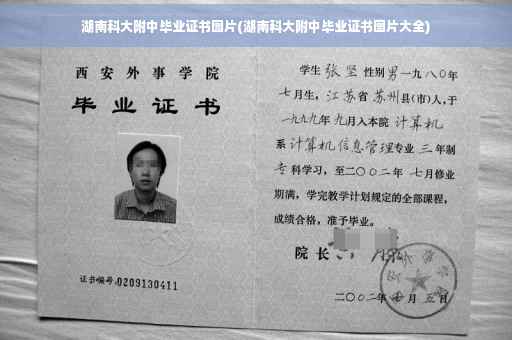 湖南科大附中毕业证书图片(湖南科大附中毕业证书图片大全)
西安外事学院
毕业证书
证书编号:0209130411
学生张坚性别男一九八〇年
七月生,江苏省苏州县(市)人,于
一九九九年九月入本院计算机
系计算机信息管理专业三年制
专科学习,至二〇〇二年七月修业
期满,学完教学计划规定的全部课程,
成绩合格,准予毕业。
院长
二〇〇二年 月五日